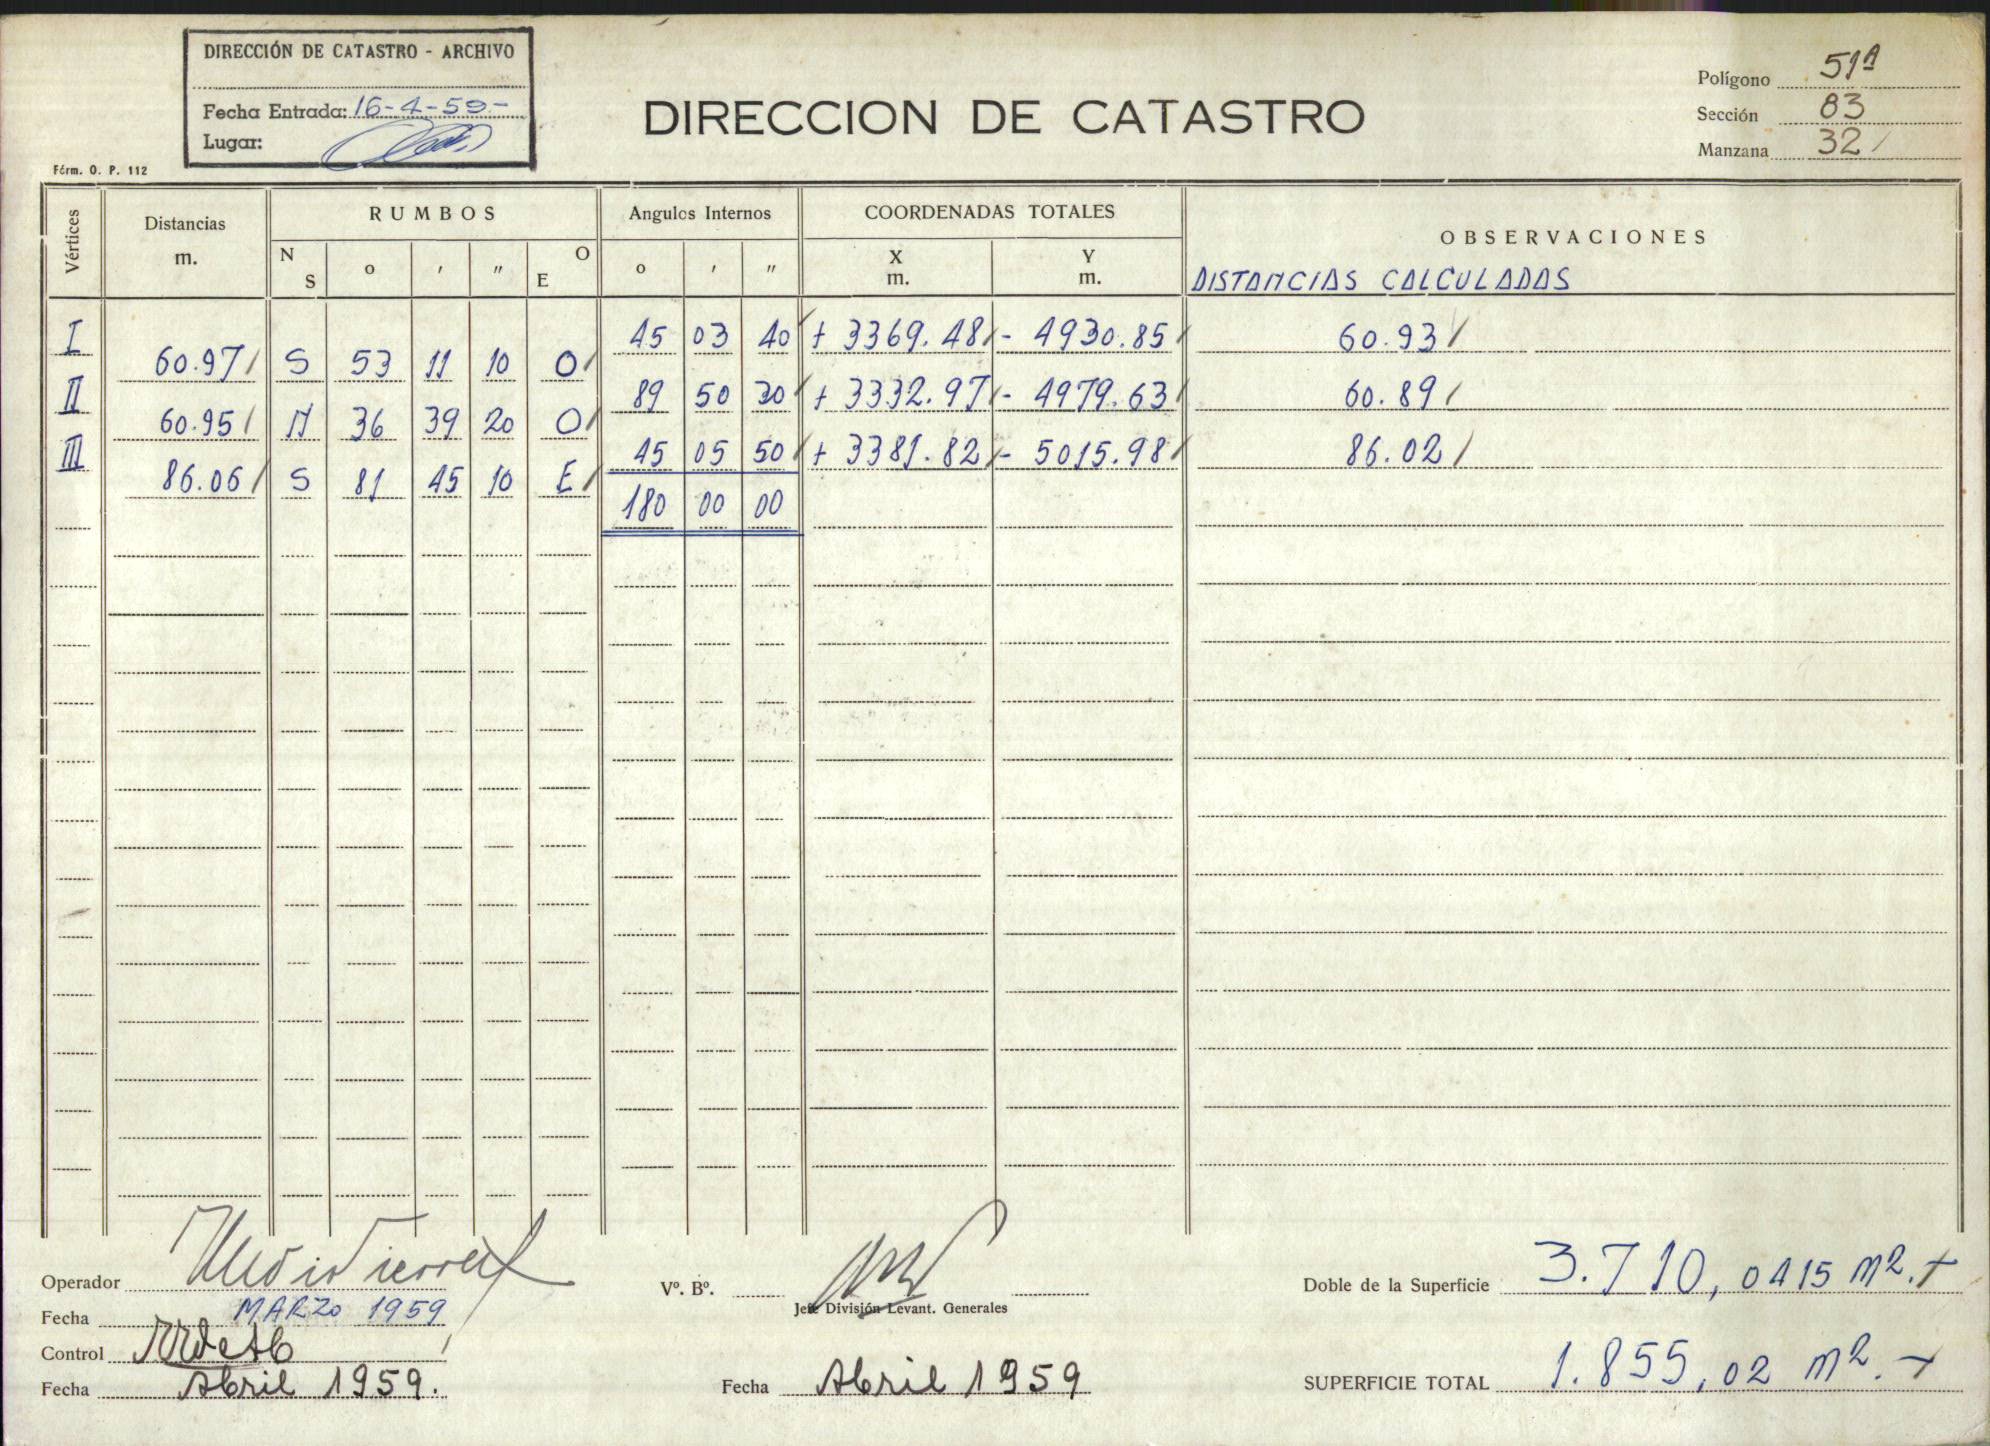 DIRECCIÓN DE CATASTRO - ARCHIVO
Fecha Entrada: 16-4-59-
Lugar:
Fórm. O. P. 112
DIRECCION DE CATASTRO
Polígono 51A
Sección 83
Manzana 32/
Vértices Distancias m. RUMBOS Angulos Internos COORDENADAS TOTALES OBSERVACIONES
N S o ' " O E o ' " X m. Y m. DISTANCIAS CALCULADAS
I 45 03 40 + 3369.48/ - 4930.85/ 60.93/
60.97/ S 53 11 10 O/
II 89 50 30/ + 3332.97/ - 4979.63/ 60.89/
60.95/ N 36 39 20 O/
III 45 05 50/ + 3381.82/ - 5015.98/ 86.02/
86.06/ S 81 45 10 E/
180 00 00
Operador
Fecha MARZO 1959
Control
Fecha Abril 1959.
Vº. Bº.
Jefe División Levant. Generales
Fecha Abril 1959
Doble de la Superficie 3.710,0415 m².+
SUPERFICIE TOTAL 1.855,02 m².+